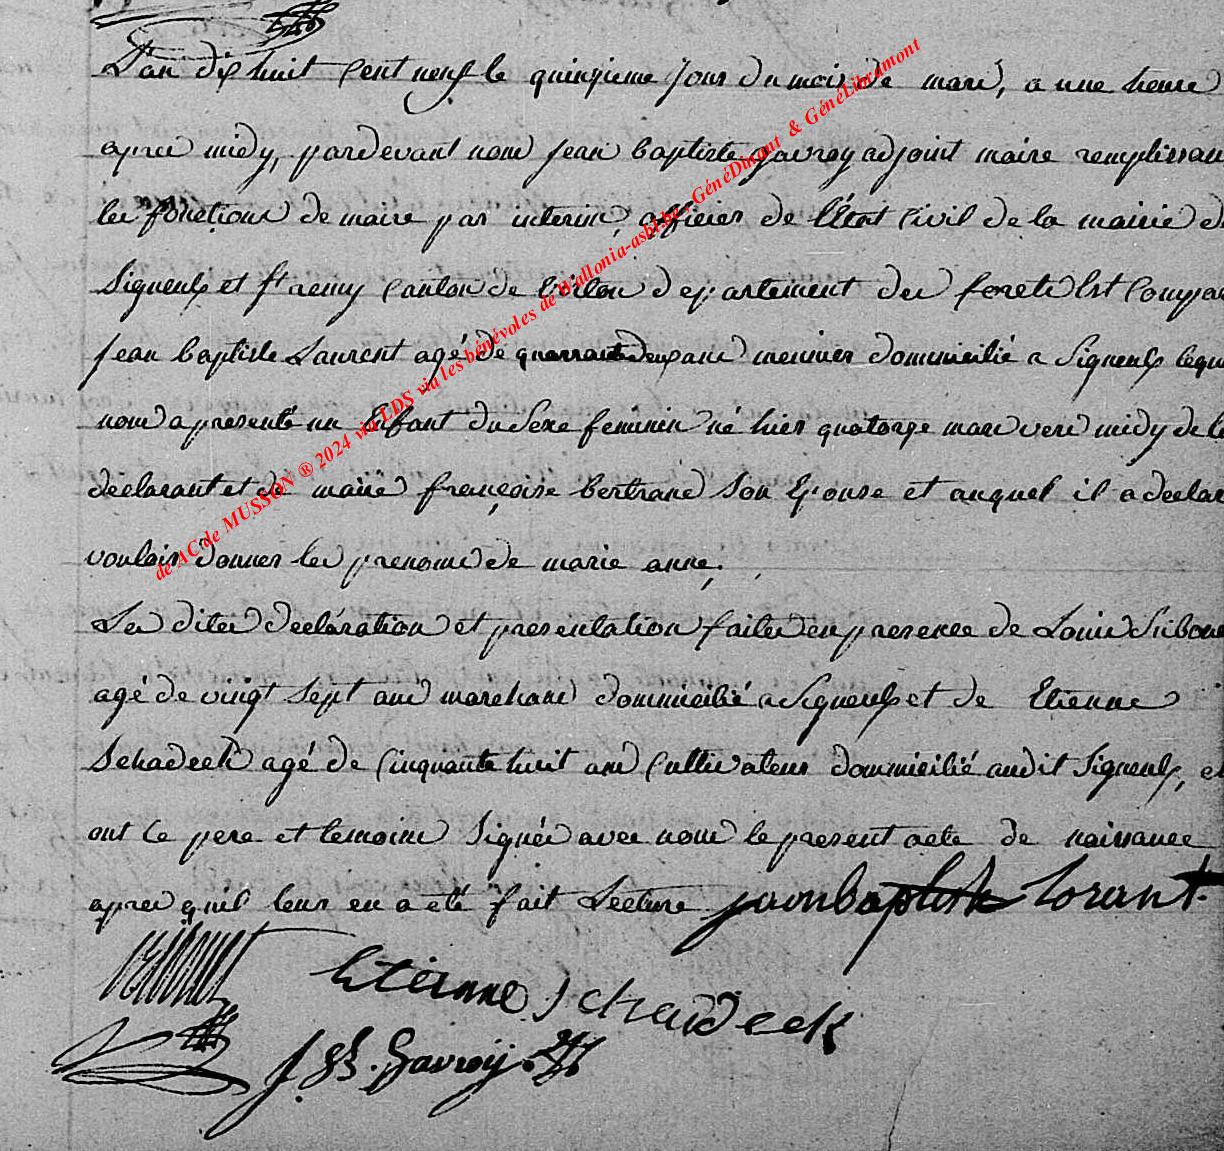 L'an dix huit cent neuf le quinzieme jour du mois de mars, a une heure
apres midy, pardevant nous jean baptiste gavroy adjoint maire remplissan
les fonctions de maire par interim, officier de l'état civil de la mairie de
Signeulx et St remy canton de virton departement des forets Est Compar
jean baptiste Laurent agé de quarrante deux ans meunier dommicilié a Signeulx lequ
nous a presenté un Enfant du Sexe feminin né hier quatorze mars vers midy de l
declarant et de marie françoise bertrand Son Epouse et auquel il a declar
vouloir donner les prenoms de marie anne.
Les dites declaration et presentation faites en presence de Louis
agé de vingt sept ans marchand dommicilié a Signeulx et de Etienne
Schadeck agé de Cinquante huit ans Cultivateur dommicilié audit Signeulx, et
ont le pere et temoins Signés avec nous le present acte de naissance
apres quil leur en a été fait Lecture jean baptiste Lorant
Etienne Schadeck
J. Bt. Gavroÿ
de AC de MUSSON ® 2024 via LDS via les bénévoles de Wallonia-asbl.be - GénéDinant & GénéLibramont